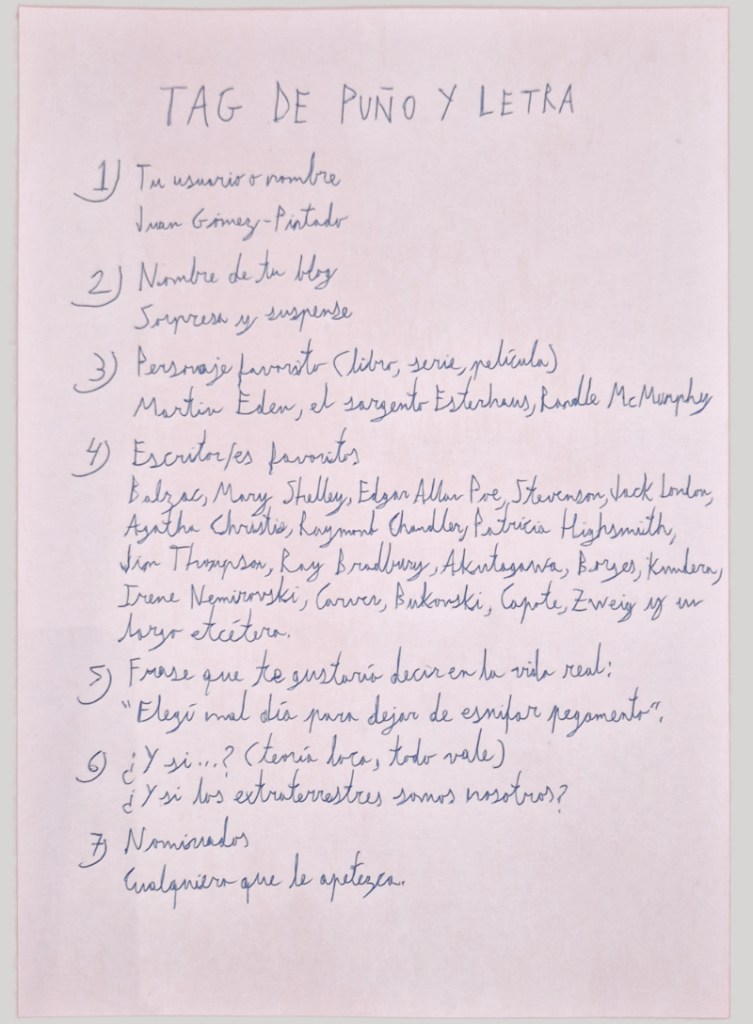 TAG DE PUÑO Y LETRA
1) Tu usuario o nombre
Juan Gómez-Pintado
2) Nombre de tu blog
Sorpresa y suspense
3) Personaje favorito (libro, serie, película)
Martin Eden, el sargento Esterhaus, Randle McMurphy
4) Escritor/es favoritos
Balzac, Mary Shelley, Edgar Allan Poe, Stevenson, Jack London,
Agatha Christie, Raymond Chandler, Patricia Highsmith,
Jim Thompson, Ray Bradbury, Akutagawa, Borges, Kundera,
Irene Nemirovski, Carver, Bukovski, Capote, Zweig y un
largo etcétera.
5) Frase que te gustaría decir en la vida real:
"Elegí mal día para dejar de esnifar pegamento".
6) ¿Y si...? (teoría loca, todo vale)
¿Y si los extraterrestres somos nosotros?
7) Nominados
Cualquiera que le apetezca.